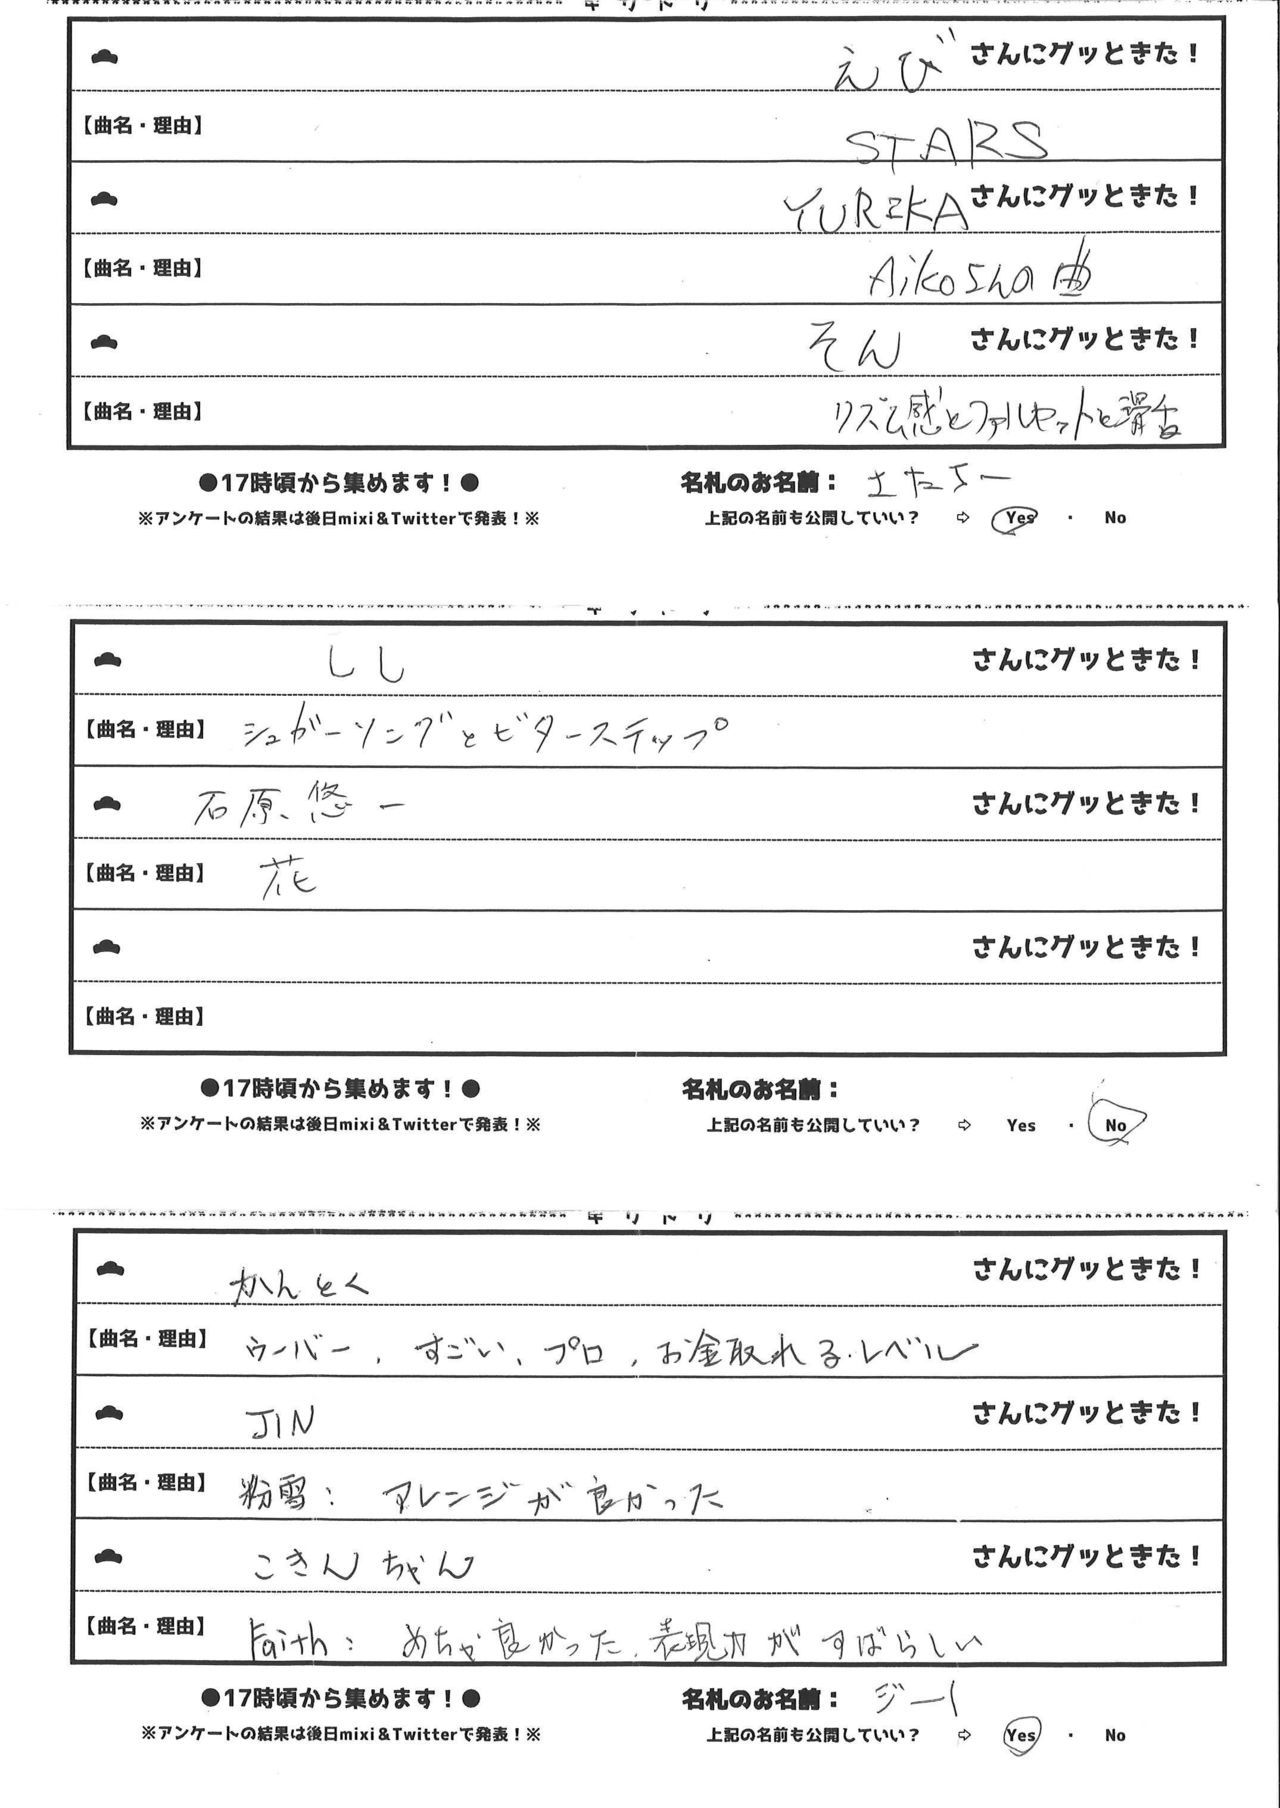 キリトリ
えび さんにグッときた！
【曲名・理由】 STARS
YUREKA さんにグッときた！
【曲名・理由】 Aikoさんの曲
そん さんにグッときた！
【曲名・理由】 リズム感とファルセットと滑舌
●17時頃から集めます！● 名札のお名前：
※アンケートの結果は後日mixi＆Twitterで発表！※ 上記の名前も公開していい？ ⇨ Yes ・ No
キリトリ
しし さんにグッときた！
【曲名・理由】 シュガーソングとビターステップ
石原悠一 さんにグッときた！
【曲名・理由】 花
さんにグッときた！
【曲名・理由】
●17時頃から集めます！● 名札のお名前：
※アンケートの結果は後日mixi＆Twitterで発表！※ 上記の名前も公開していい？ ⇨ Yes ・ No
キリトリ
かんとく さんにグッときた！
【曲名・理由】 ウーバー、すごい、プロ、お金取れるレベル
JIN さんにグッときた！
【曲名・理由】 粉雪： アレンジが良かった
こきんちゃん さんにグッときた！
【曲名・理由】 Faith： めちゃ良かった、表現力がすばらしい
●17時頃から集めます！● 名札のお名前： ジーー
※アンケートの結果は後日mixi＆Twitterで発表！※ 上記の名前も公開していい？ ⇨ Yes ・ No